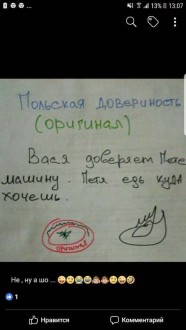 13% 13:07
Польская довериность
(оригинал)
Вася доверяет Пете
машину. Петя едь куда
хочешь.
оригинал
Не , ну а шо ...
1
Нравится
Комментарий